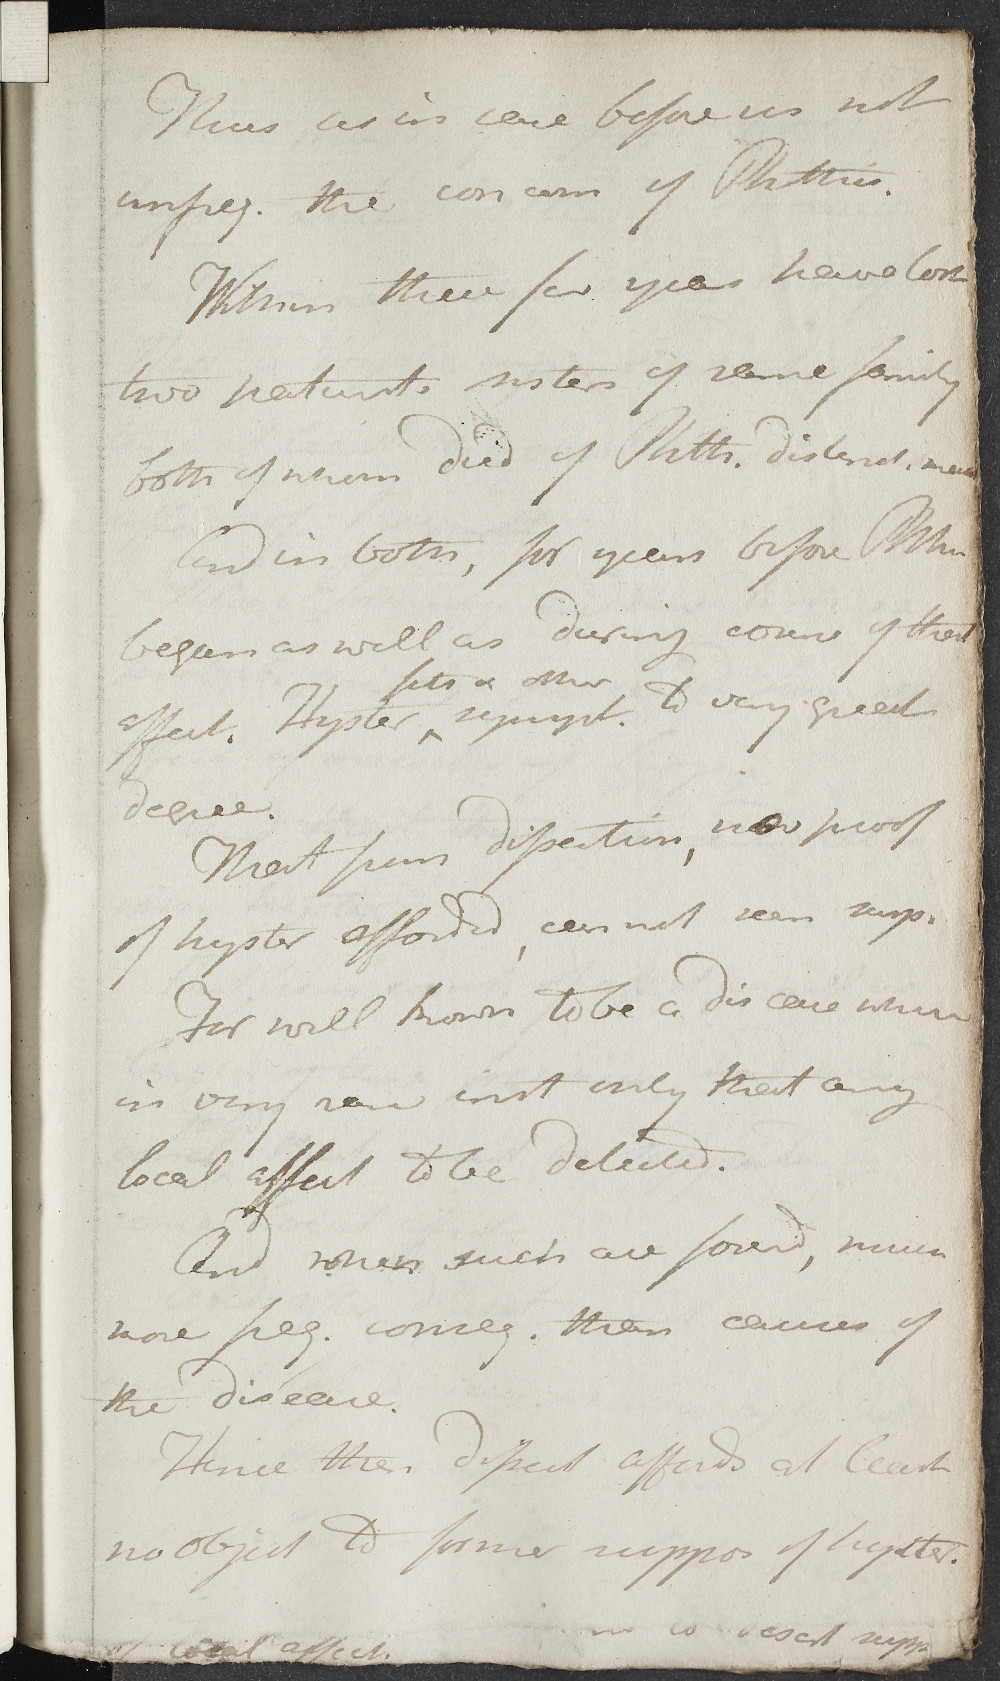 Thus as in case before us not
unfreq. the concom of Phthisis.
Within these few years have lost
two patients sisters of same family
both of whom died of Phth. distinct. mark
And in both, for years before Phthis
began as well as during course of that
affect. Hyster ‸ fits & other sympt. to very great
degree.
That from dissection, no proof
of hyster afforded, can not seem surp.
For well known to be a disease where
in very rare inst only that any
local affect to be detected.
And when such are found, much
more freq. conseq. than causes of
the disease.
Hence then dissect affords at least
no object to former suppos of hyster.
local affect.